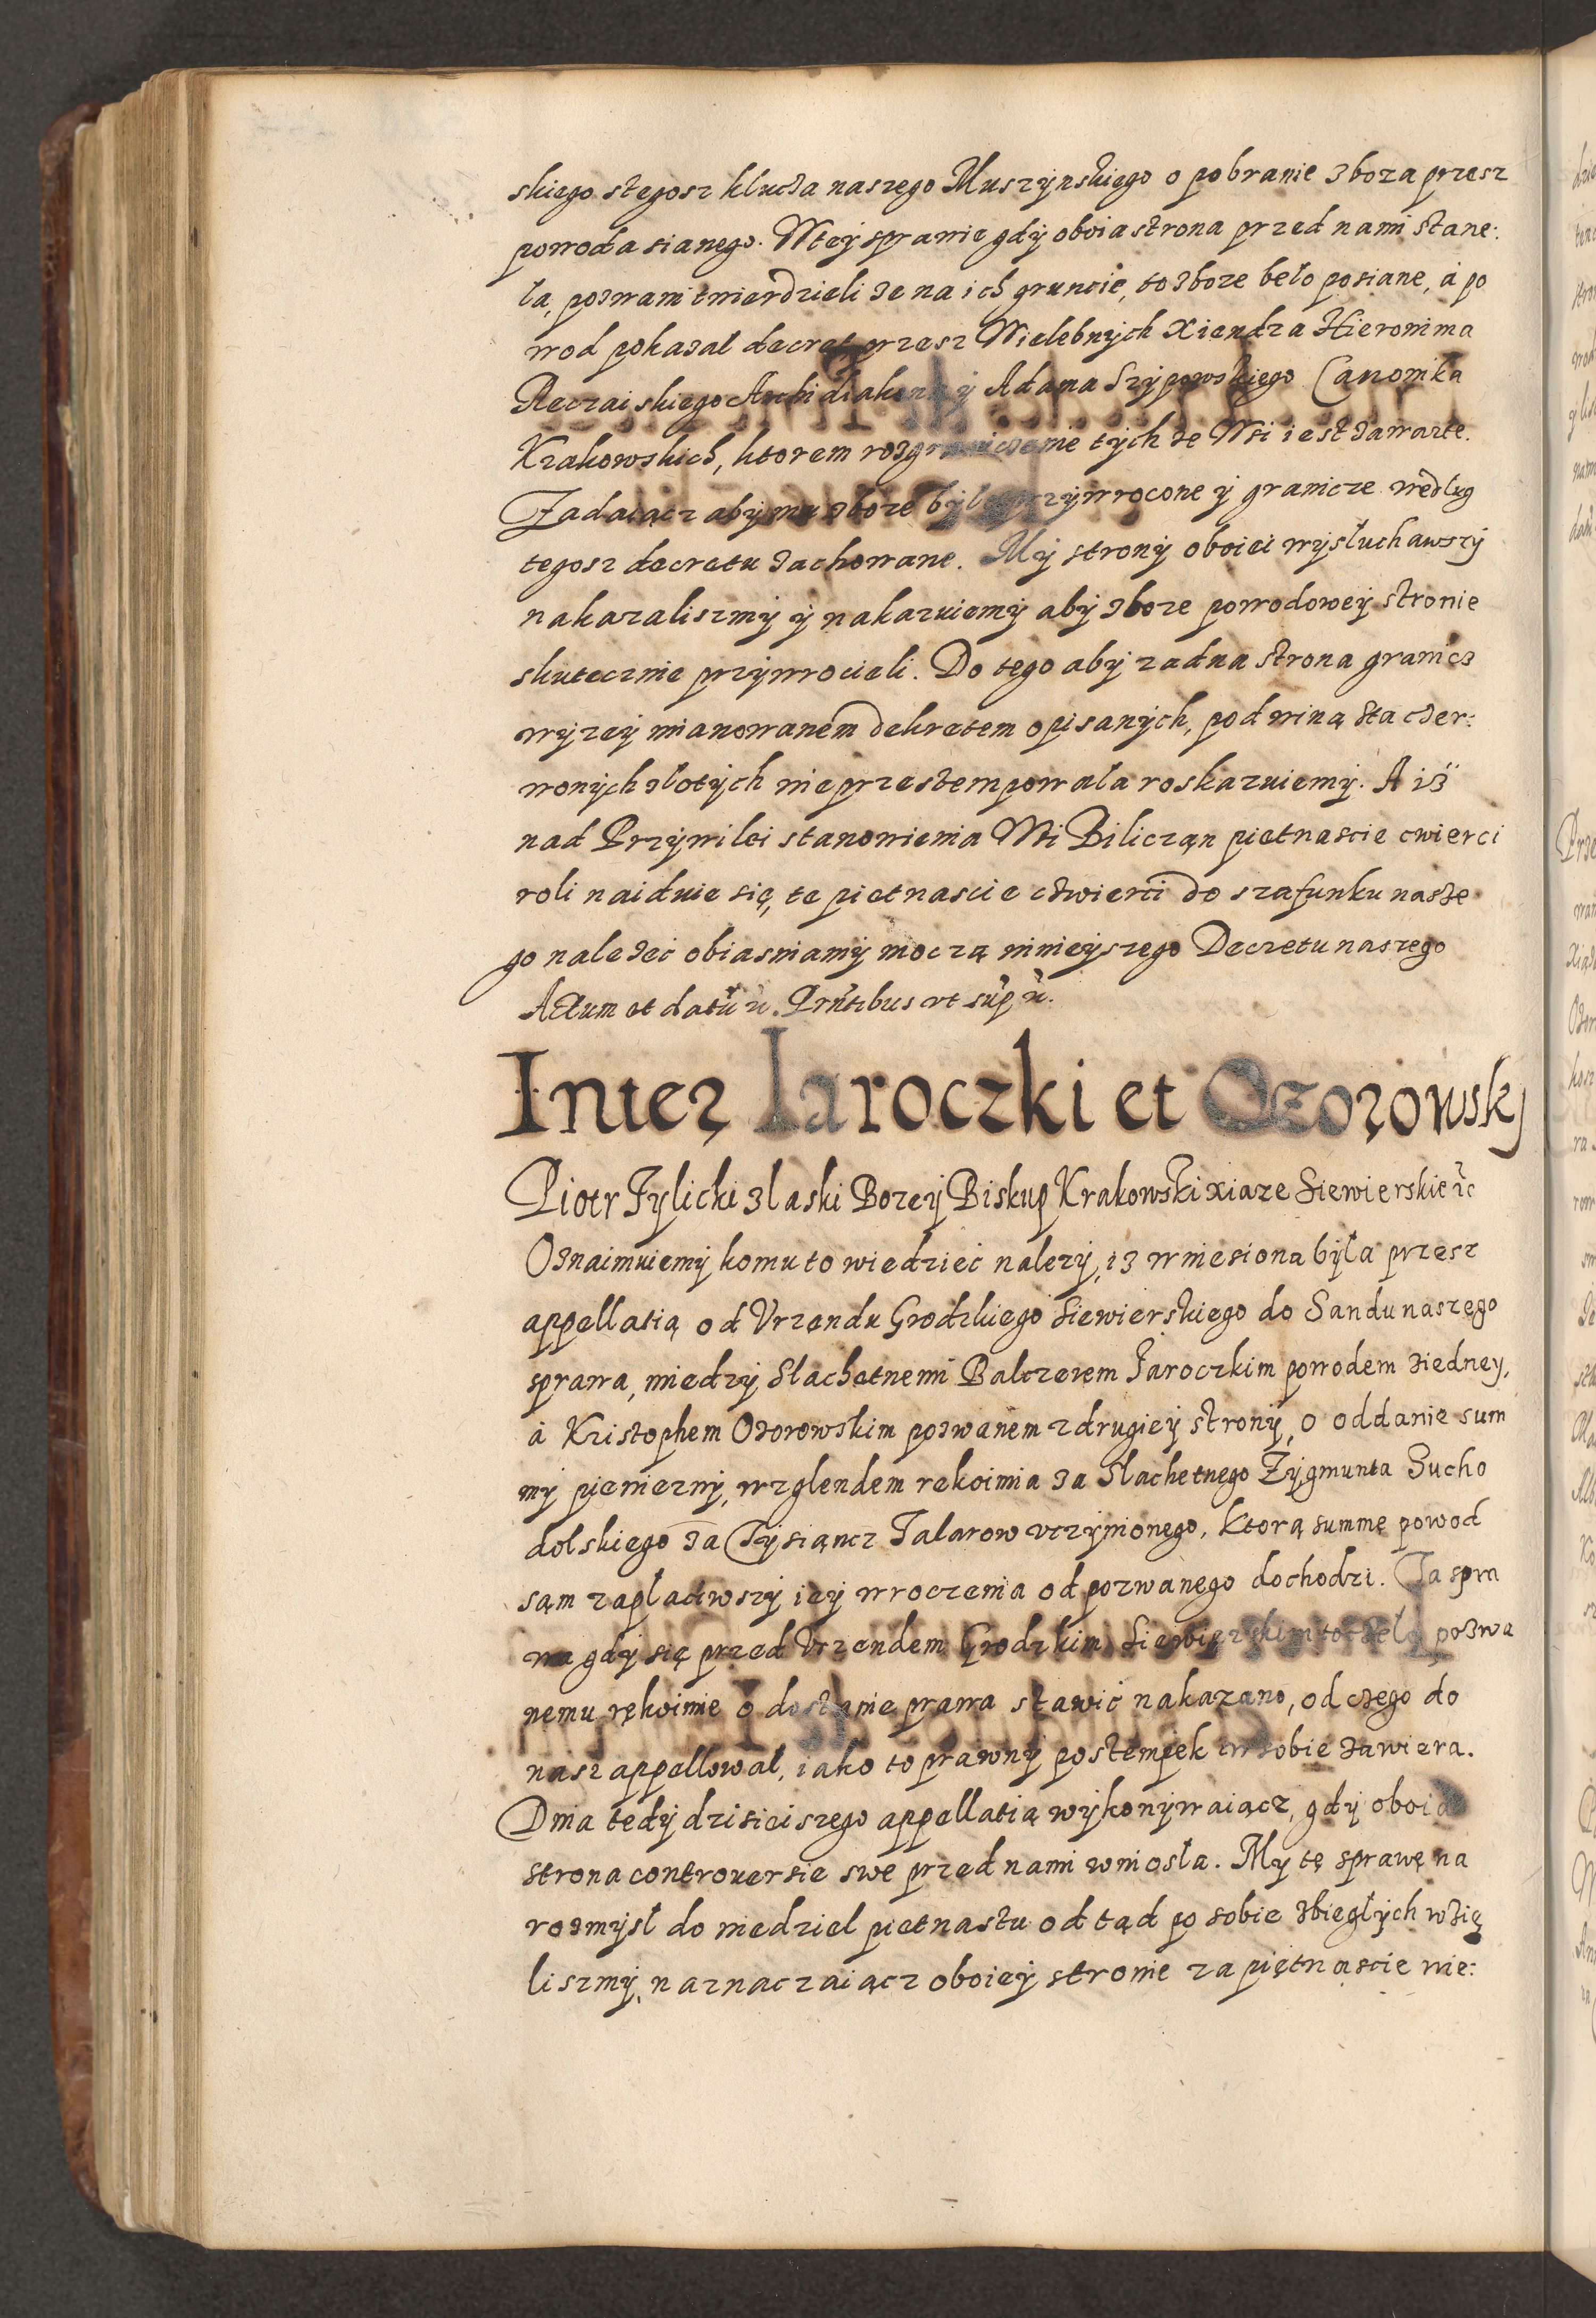 skiego stegosz klucza naszego Muszynskiego o pobranie zboza przesz
powoda sianego. W tey sprawie gdy oboia strona przed nami stane:
ła, pozwani twierdzieli ze na ich gruncie, to zboze beło posiane, á po
wod pokazał decret przesz Wielebnych Xiendza Hieronima
Reczaiskiego Archidiakona y Adama Szypowskiego Canonika
Krakowskich, ktorem rozgraniczenie tych ze Wsi iest zawarte.
Ządaiącz aby mu zboze było przywrocone y granicze według
tegosz decretu zachowane. My strony oboiei wysłuchawszy
nakazaliszmy y nakazuiemy aby zboze powodowey stronie
skutecznie przywrocieli. Do tego aby zadna strona granicz
wyzey mianowanem dekretem opisanych, pod winą sta czer:
wonych złotych nie przestempowała roskazuiemy. A iż
nad Przywilei stanowienia Wsi Bilicząn pietnascie cwierci
roli naiduie się, te pietnascie czwierci do szafunku nasze
go nalezeć obiasniamy moczą ninieyszego Decretu naszego
Actum et datũ ũ. Prñtibus ut suṕ ũ.
Inter Iaroczki et Ozorowskj
Piotr Tylicki z laski Bozey Biskup Krakowski xiaze Siewierskie ẽc
Oznaimuiemy komu to wiedzieć nalezy, iz wniesiona była przesz
appellatią od Vrzendu Grodzkiego Siewierskiego do Sandu naszego
sprawa, miedzy Slachetnemi Balczerem Jaroczkim powodem ziedney,
á Kristophem Ozorowskim pozwanem z drugiey strony, o oddanie sum
my pieniezny, wzglendem rekoimia za Slachetnego Zygmunta Sucho
dolskiego za Tysiąncz Talarow uczynionego, ktorą summę powod
sąm zapłaciwszy iey wroczenia od pozwanego dochodzi. Ta spra
wa gdy się przed Vrzendem Grodzkim Siewierskim toczeła, pozwa
nemu rękoimie o dostanie prawa stawić nakazano, od czego do
nasz appellował, iako to prawny postempek w sobie zawiera.
Dnia tedy dzisieiszego appellatią wykonywaiącz, gdy oboia
strona controuersie swe przed nami wniosła. My tę sprawę na
rozmysł do niedziel pietnastu od tąd po sobie zbiegłych wzię
liszmy, naznaczaiącz oboiey stronie za piętnascie nie: